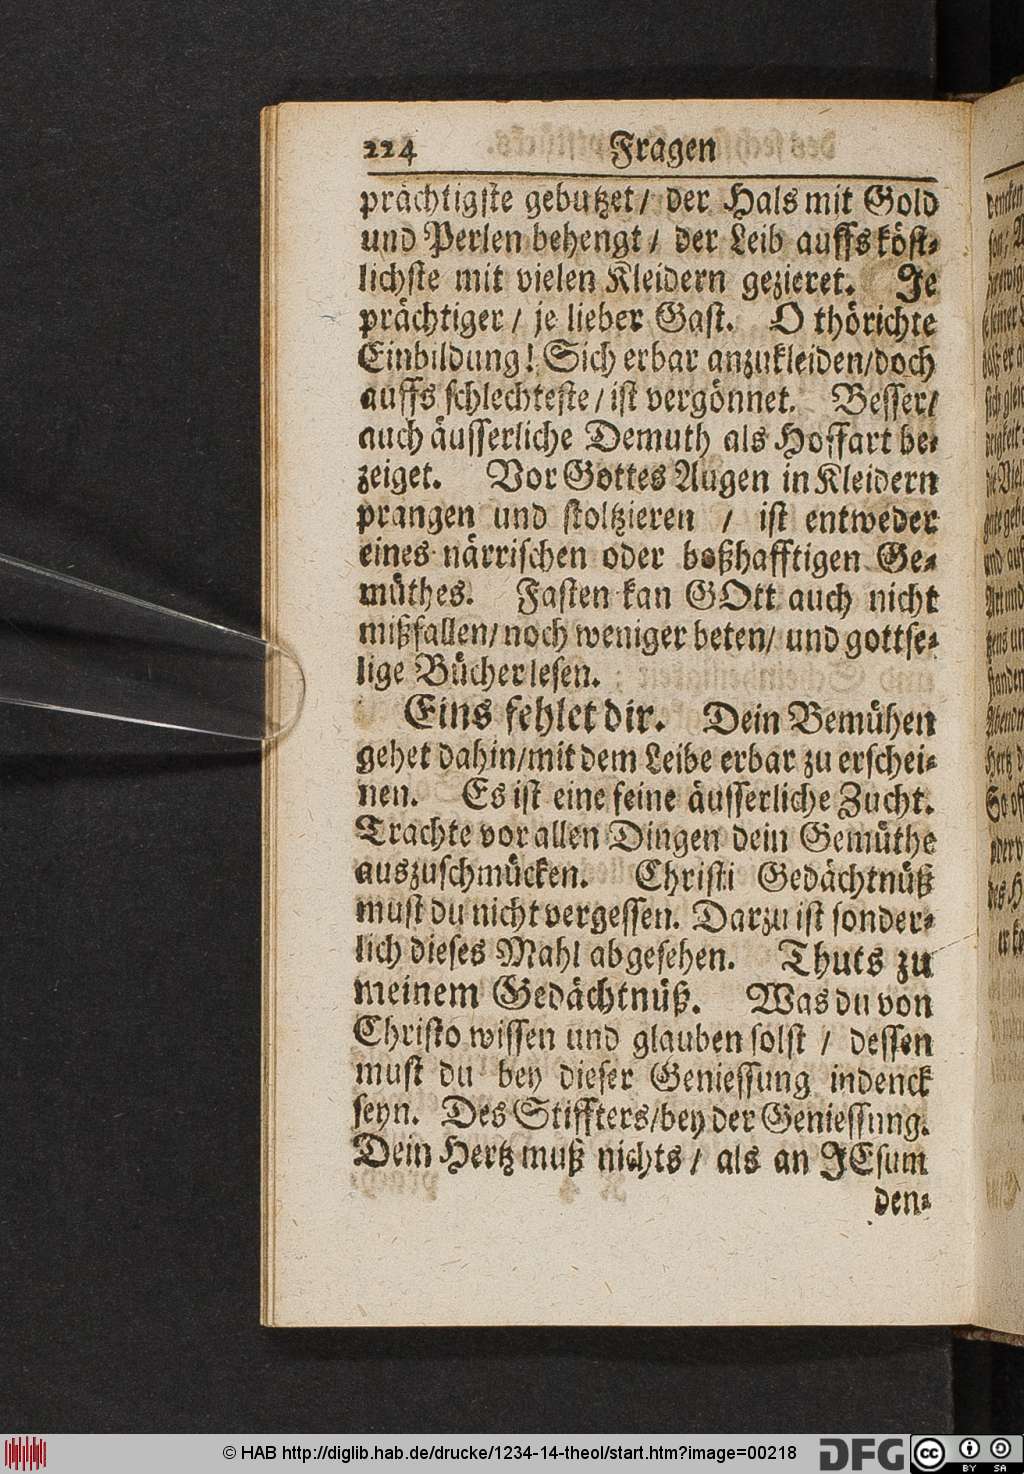 224 Fragen
prächtigste gebutzet / der Hals mit Gold
und Perlen behengt / der Leib auffs köst-
lichste mit vielen Kleidern gezieret. Je
prächtiger / je lieber Gast. O thörichte
Einbildung! Sich erbar anzukleiden/doch
auffs schlechteste / ist vergönnet. Besser/
auch äusserliche Demuth als Hoffart be-
zeiget. Vor Gottes Augen in Kleidern
prangen und stoltzieren / ist entweder
eines närrischen oder boßhafftigen Ge-
müthes. Fasten kan GOtt auch nicht
mißfallen/ noch weniger beten/ und gottse-
lige Bücher lesen.
Eins fehlet dir. Dein Bemühen
gehet dahin/mit dem Leibe erbar zu erschei-
nen. Es ist eine feine äusserliche Zucht.
Trachte vor allen Dingen dein Gemüthe
auszuschmücken. Christi Gedächtnüß
must du nicht vergessen. Darzu ist sonder-
lich dieses Mahl abgesehen. Thuts zu
meinem Gedächtnüß. Was du von
Christo wissen und glauben solst / dessen
must du bey dieser Geniessung indenck
seyn. Des Stiffters/bey der Geniessung.
Dein Hertz muß nichts / als an JEsum
den-
© HAB http://diglib.hab.de/drucke/1234-14-theol/start.htm?image=00218
DFG
cc BY SA